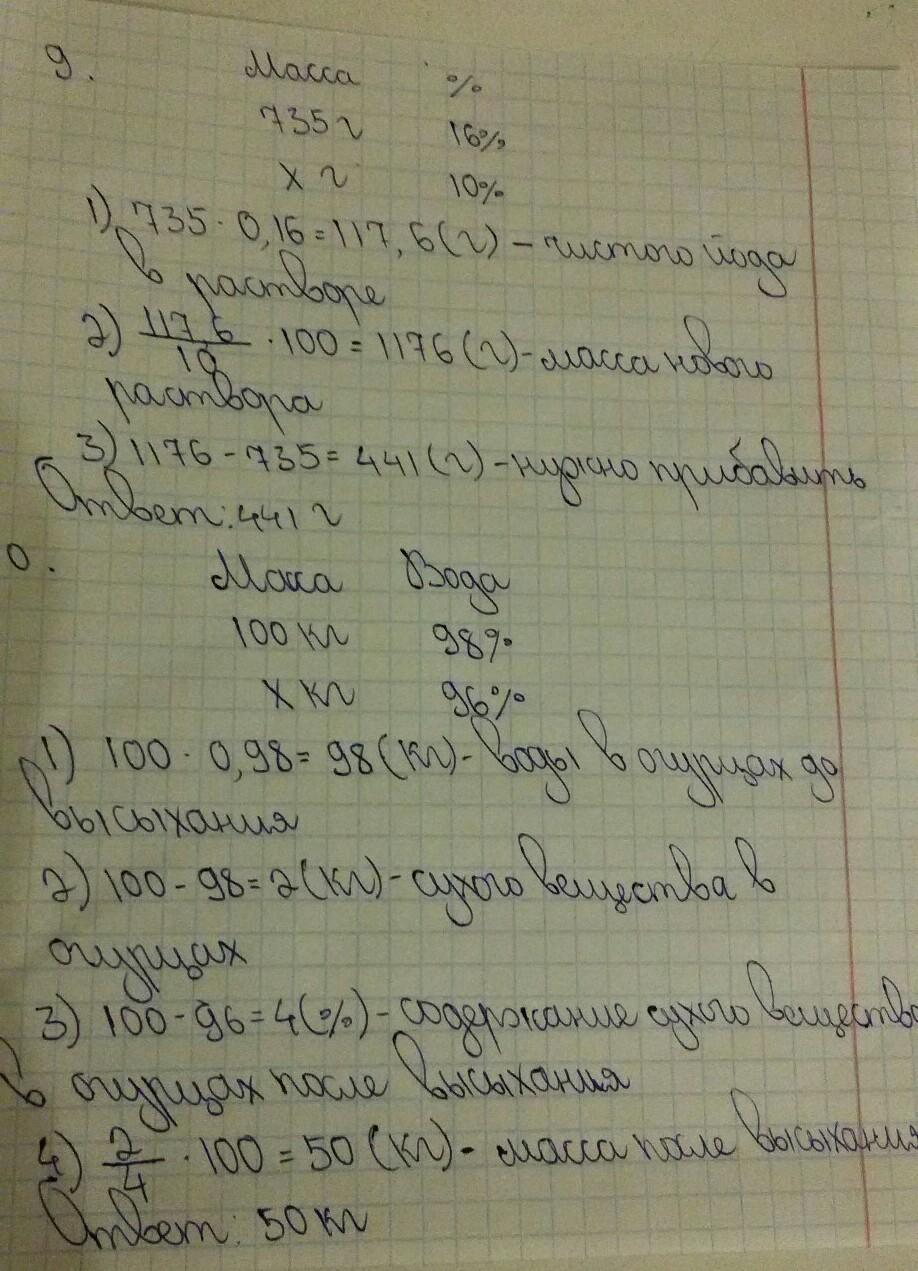 9. Масса %
735 г 16%
х г 10%
1) 735 · 0,16 = 117,6 (г) – чистого йода
в растворе
2) 117,6/10 · 100 = 1176 (г) – масса нового
раствора
3) 1176 – 735 = 441 (г) – нужно прибавить
Ответ: 441 г
0. Масса Вода
100 кг 98%
х кг 96%
1) 100 · 0,98 = 98 (кг) – воды в огурцах до
высыхания
2) 100 – 98 = 2 (кг) – сухого вещества в
огурцах
3) 100 – 96 = 4 (%) – содержание сухого вещества
в огурцах после высыхания
4) 2/4 · 100 = 50 (кг) – масса после высыхания
Ответ: 50 кг